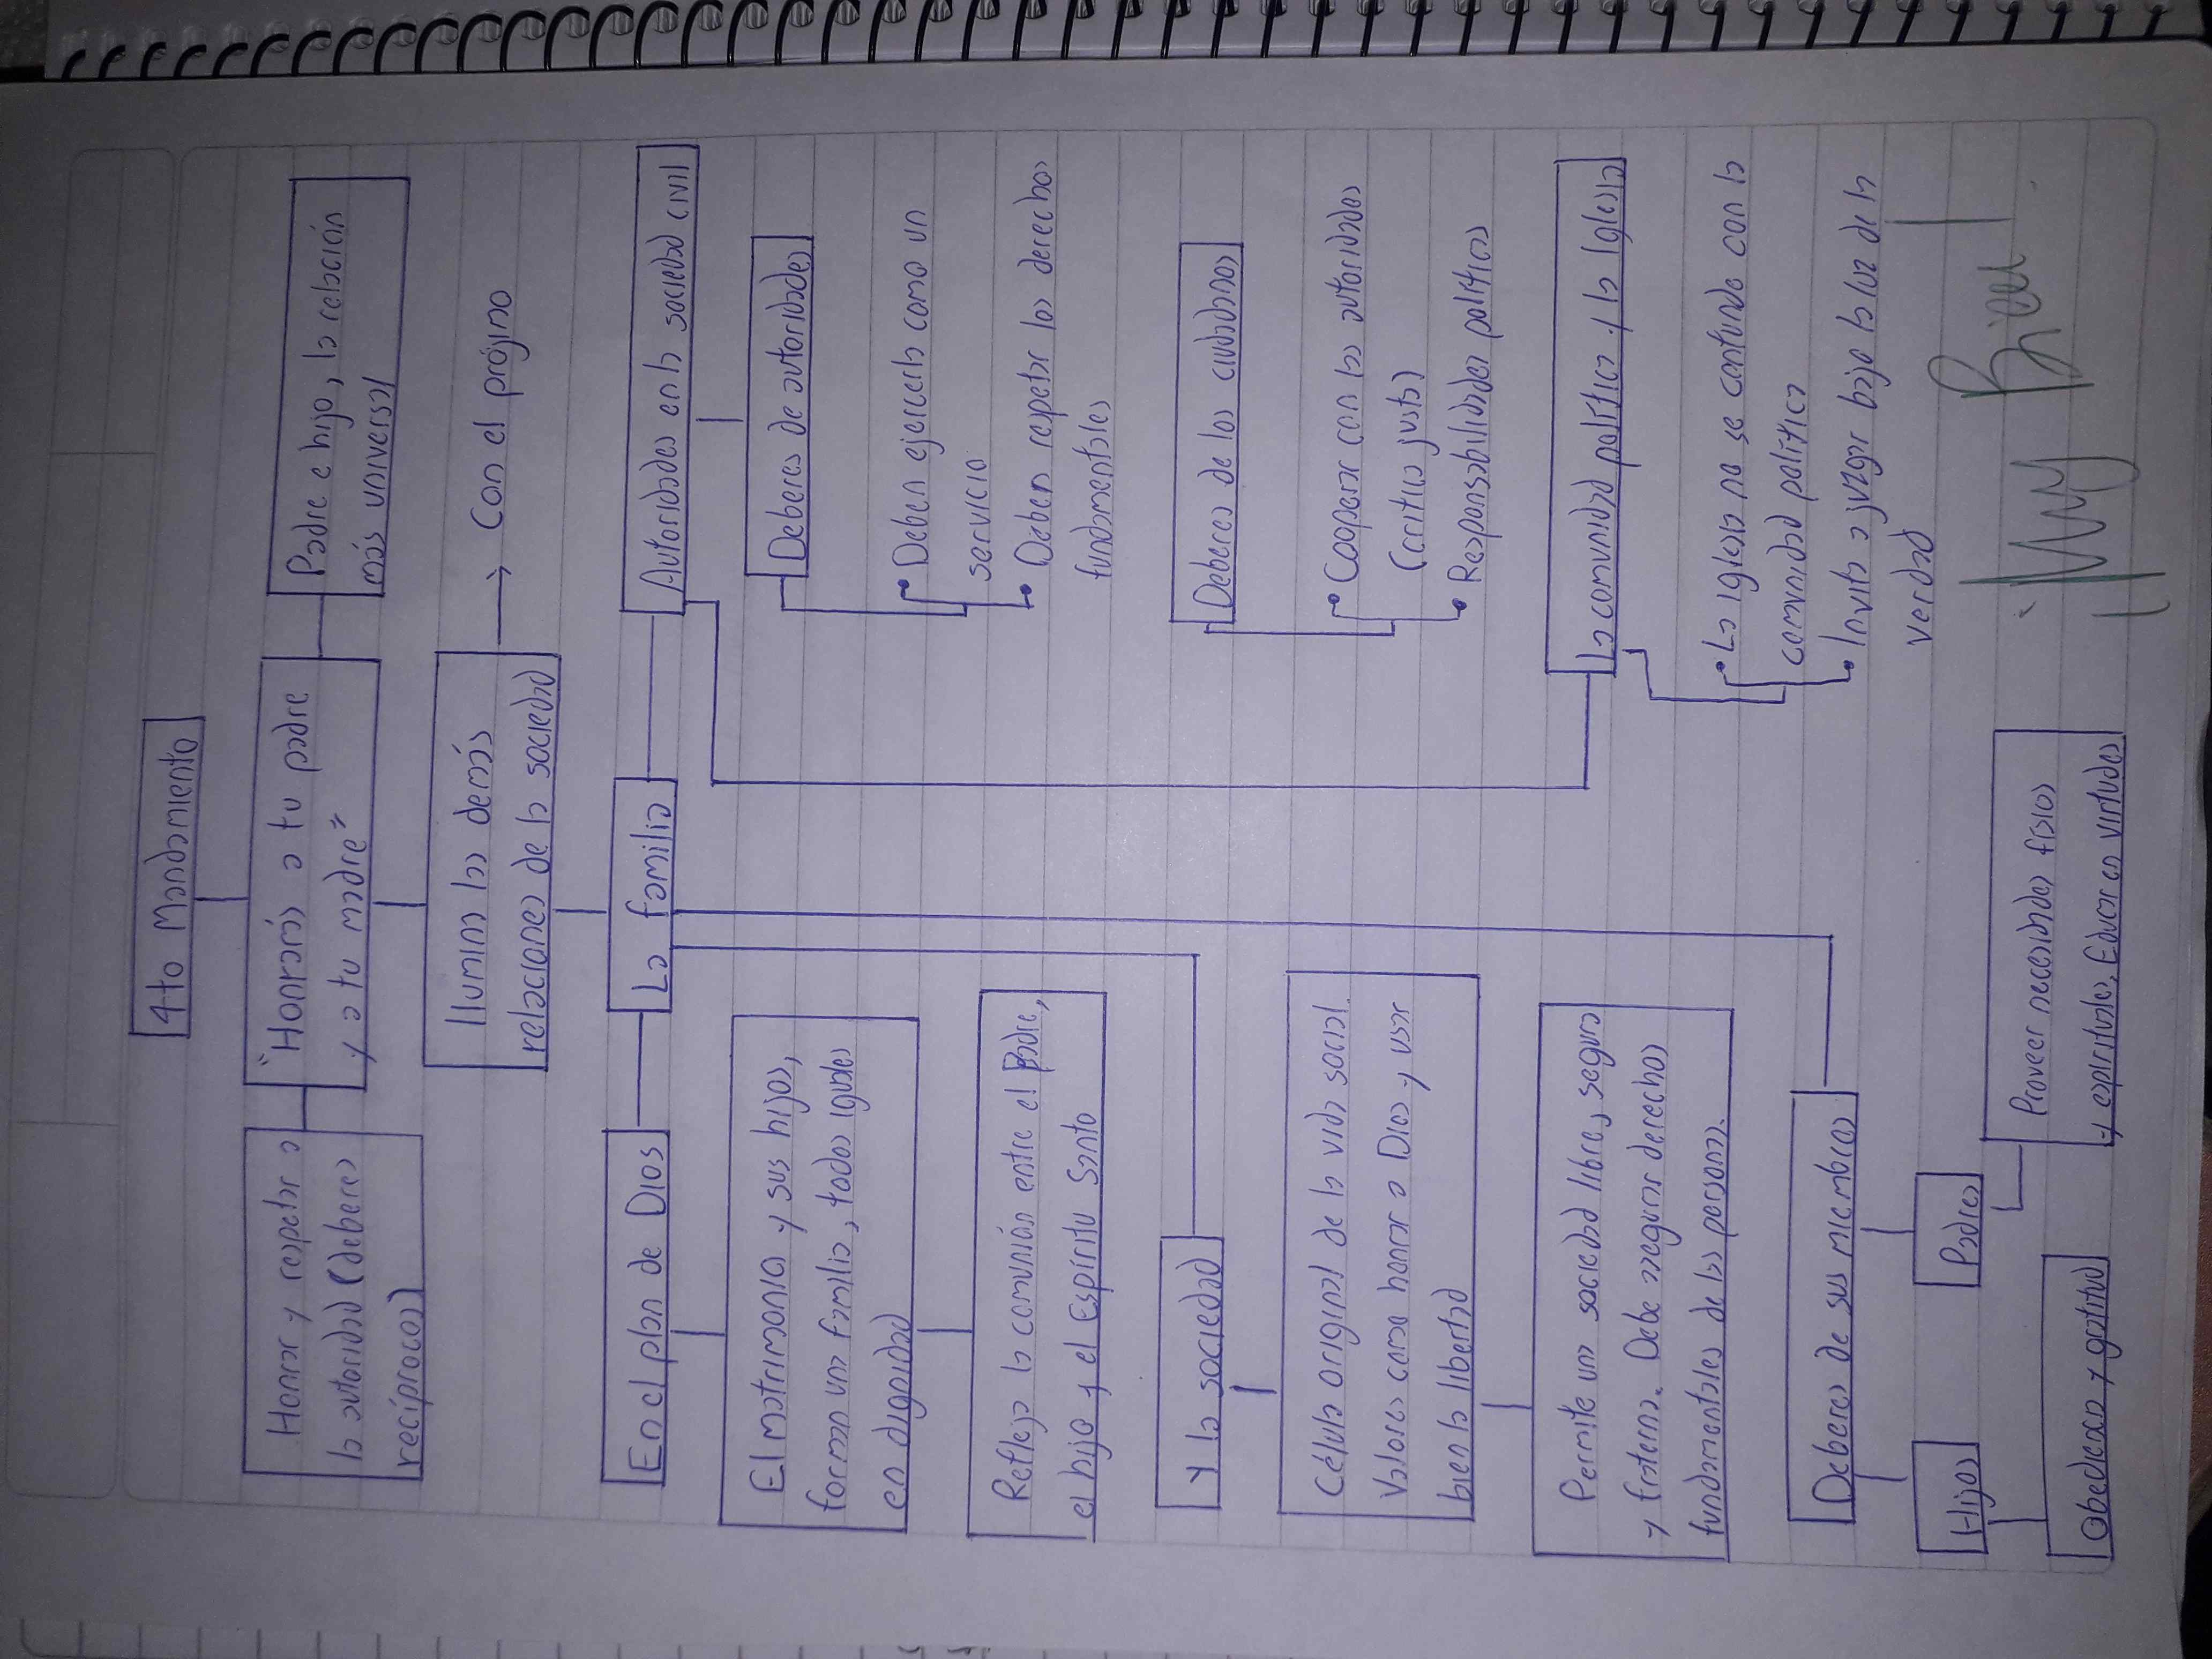 4to Mandamiento
Honrar y respetar a
la autoridad (deberes
recíprocos)
"Honrarás a tu padre
y a tu madre"
Padre e hijo, la relación
más universal
Ilumina las demás
relaciones de la sociedad
→ Con el prójimo
La familia
En el plan de Dios
El matrimonio y sus hijos,
forman una familia, todos iguales
en dignidad
Refleja la comunión entre el Padre,
el hijo y el Espíritu Santo
Y la sociedad
Célula original de la vida social.
Valores como honrar a Dios y usar
bien la libertad
Permite una sociedad libre, segura
y fraterna. Debe asegurar derechos
fundamentales de las personas.
Deberes de sus miembros
Hijos
Obediencia y gratitud
Padres
Proveer necesidades físicas
y espirituales. Educar en virtudes
Autoridades en la sociedad civil
Deberes de autoridades
• Deben ejercerla como un
servicio
• Deben respetar los derechos
fundamentales
Deberes de los ciudadanos
• Cooperar con las autoridades
(crítica justa)
• Responsabilidades políticas
La comunidad política y la Iglesia
• La iglesia no se confunde con la
comunidad política
• Invita a juzgar bajo la luz de la
verdad
¡Muy Bien!